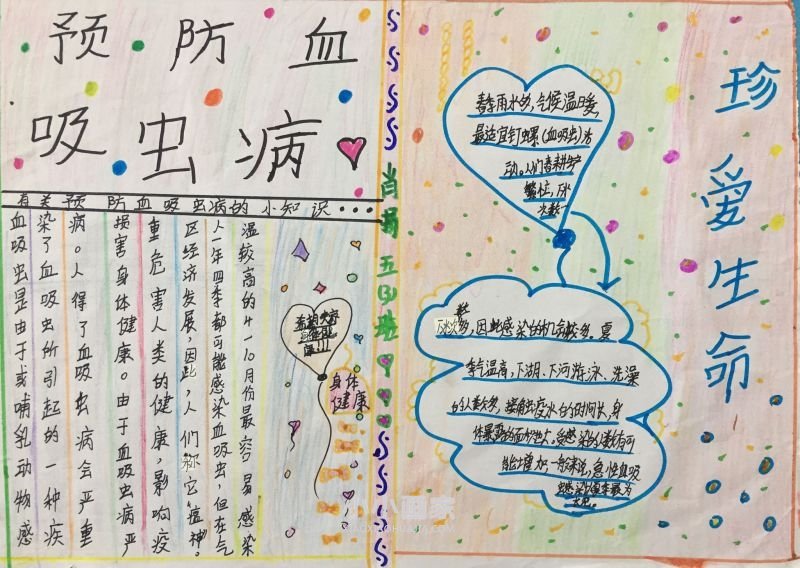 预防血
吸虫病
有关预防血吸虫病的小知识...
血吸虫是由于或哺乳动物感
染了血吸虫所引起的一种疾
病。人得了血吸虫病会严重
损害身体健康。由于血吸虫病严
重危害人类的健康，影响疫
区经济发展，因此，人们称它"瘟神"。
人一年四季都可能感染血吸虫，但在气
温较高的4-10月份最容易感染
身体
健康。
五(3)班
春季雨水多，气候温暖，
最适宜钉螺(血吸虫)活
动。人们春耕生产
繁忙，下水
次数
多，因此感染的机会较多。夏
季气温高，下湖、下河游泳、洗澡
的人数多，接触疫水的时间长，身
体暴露的面积也大。受感染的人数有可
能增加，一般来说，急性血吸
虫感染
珍爱生命